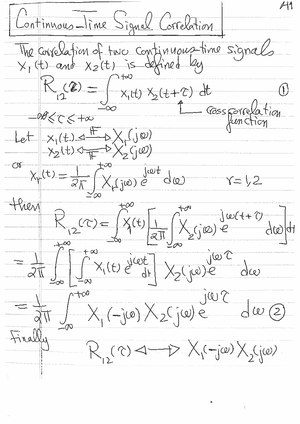 A1
Continuous-Time Signal Correlation
The correlation of two continuous-time signals
x₁(t) and x₂(t) is defined by
R₁₂(τ) = ∫_{-∞}^{+∞} x₁(t) x₂(t+τ) dt ①
-∞ ≤ τ ≤ +∞ crosscorrelation function
Let x₁(t) ⟷^{F} X₁(jω)
x₂(t) ⟷^{F} X₂(jω)
or x_r(t) = 1/2π ∫_{-∞}^{+∞} X_r(jω) e^{jωt} dω r=1,2
then
R₁₂(τ) = ∫_{-∞}^{+∞} x₁(t) [1/2π ∫_{-∞}^{+∞} X₂(jω) e^{jω(t+τ)} dω] dt
= 1/2π ∫_{-∞}^{+∞} [∫_{-∞}^{+∞} x₁(t) e^{jωt} dt] X₂(jω) e^{jωτ} dω
= 1/2π ∫_{-∞}^{+∞} X₁(-jω) X₂(jω) e^{jωτ} dω ②
Finally
R₁₂(τ) ⟷ X₁(-jω) X₂(jω)